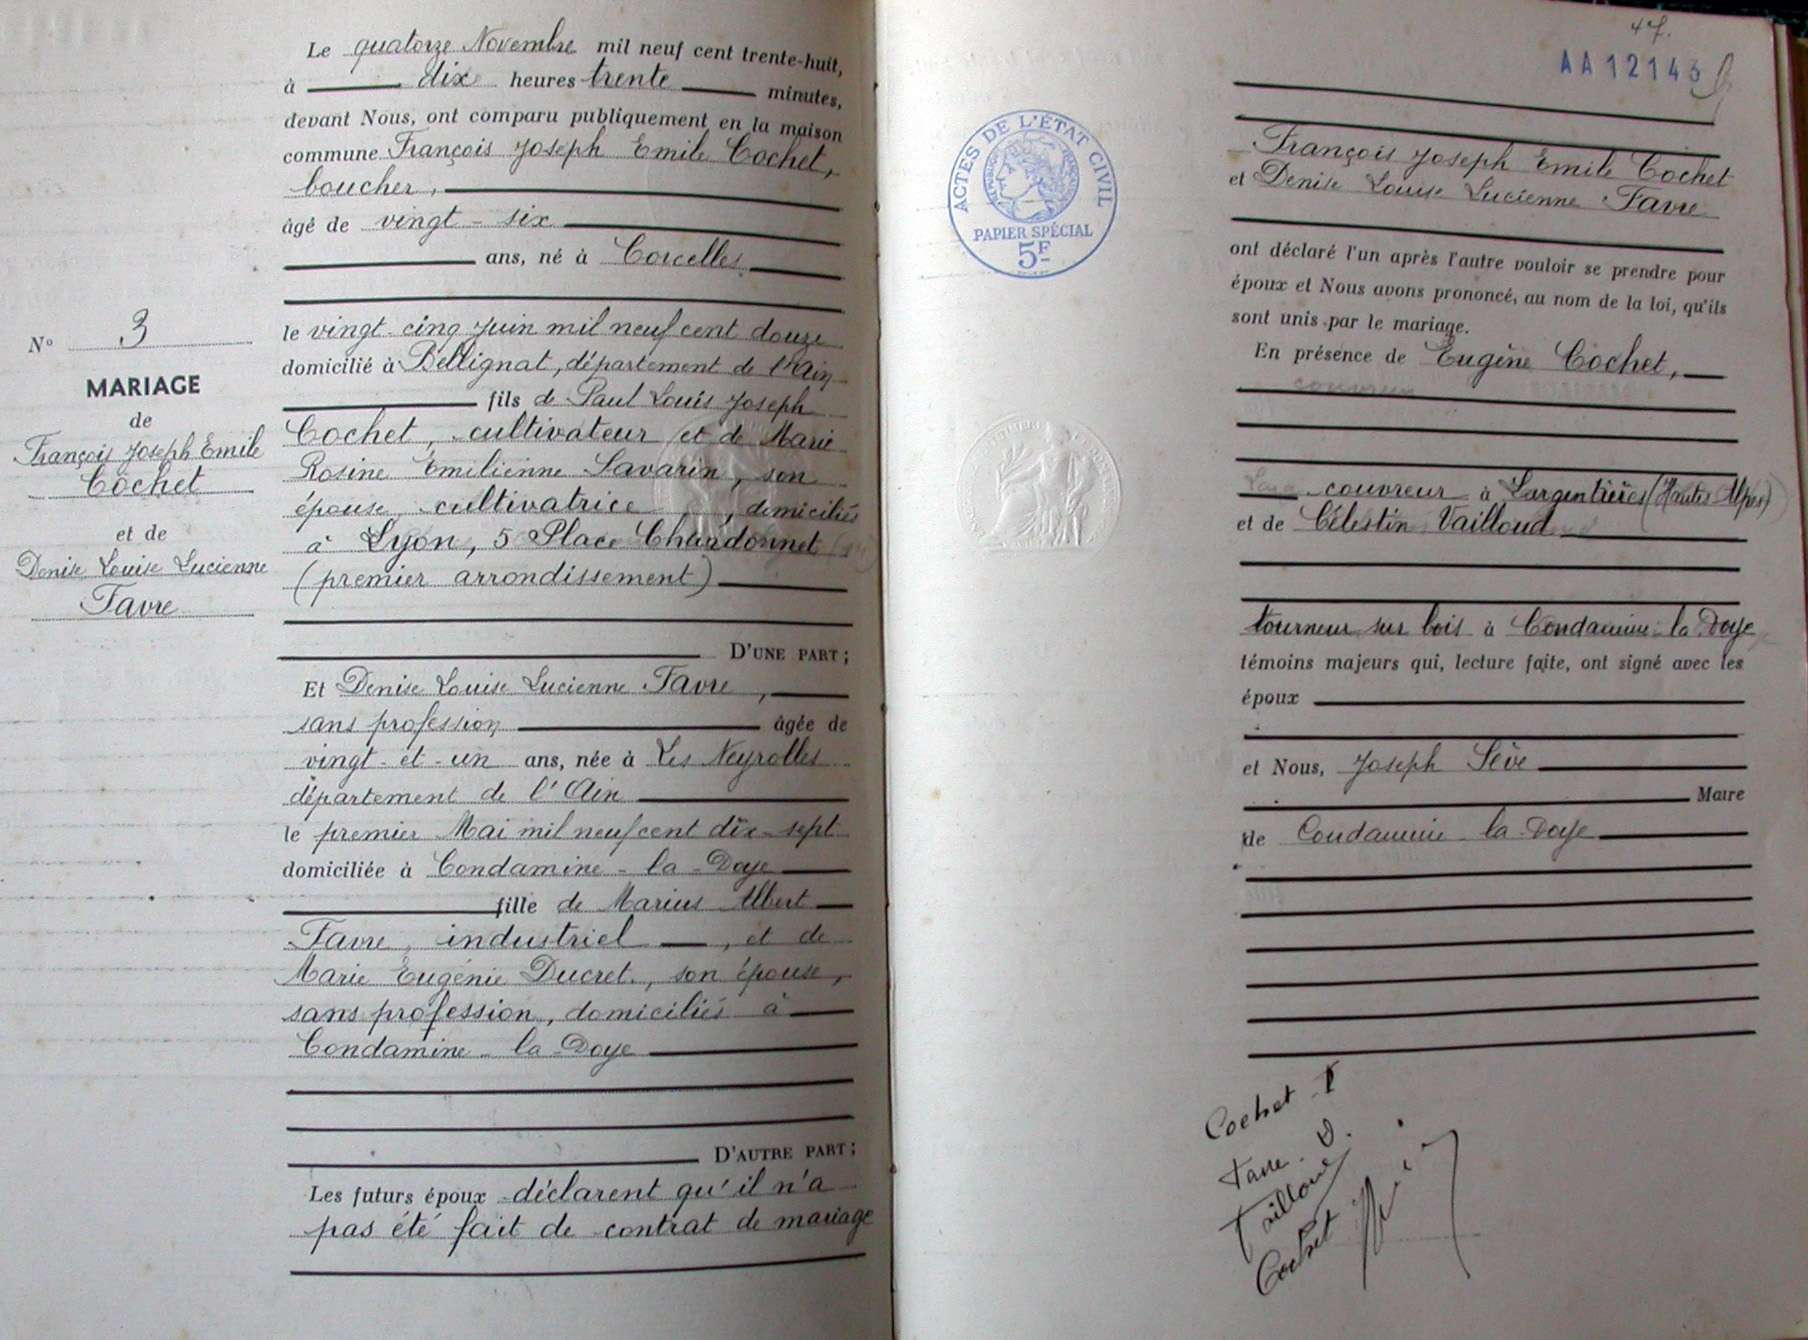 Le quatorze Novembre mil neuf cent trente-huit,
à dix heures trente minutes,
devant Nous, ont comparu publiquement en la maison
commune François Joseph Emile Cochet,
boucher,
âgé de vingt-six
ans, né à Corcelles
le vingt-cinq Juin mil neuf cent douze
domicilié à Bellignat, département de l'Ain
fils de Paul Louis Joseph
Cochet, cultivateur et de Marie
Rosine Émilienne Savarin, son
épouse, cultivatrice, domiciliés
à Lyon, 5 Place Chardonnet
(premier arrondissement)
D'UNE PART;
N° 3
MARIAGE
de
François Joseph Emile
Cochet
et de
Denise Louise Lucienne
Favre
Et Denise Louise Lucienne Favre,
sans profession âgée de
vingt-et-un ans, née à Les Neyrolles
département de l'Ain
le premier Mai mil neuf cent dix-sept
domiciliée à Condamine-la-Doye
fille de Marius Albert
Favre, industriel, et de
Marie Eugénie Ducret, son épouse,
sans profession, domiciliés à
Condamine-la-Doye
D'AUTRE PART;
Les futurs époux déclarent qu'il n'a
pas été fait de contrat de mariage
47.
AA12143
ACTES DE L'ÉTAT CIVIL
PAPIER SPÉCIAL
5F
François Joseph Emile Cochet
et Denise Louise Lucienne Favre
ont déclaré l'un après l'autre vouloir se prendre pour
époux et Nous avons prononcé, au nom de la loi, qu'ils
sont unis par le mariage.
En présence de Eugène Cochet,
couvreur à Largentières (Hautes Alpes)
et de Célestin Vailloud
tourneur sur bois à Condamine-la-Doye
témoins majeurs qui, lecture faite, ont signé avec les
époux
et Nous, Joseph Sève
Maire
de Condamine-la-Doye
Cochet F
Favre D.
Vailloud
Cochet